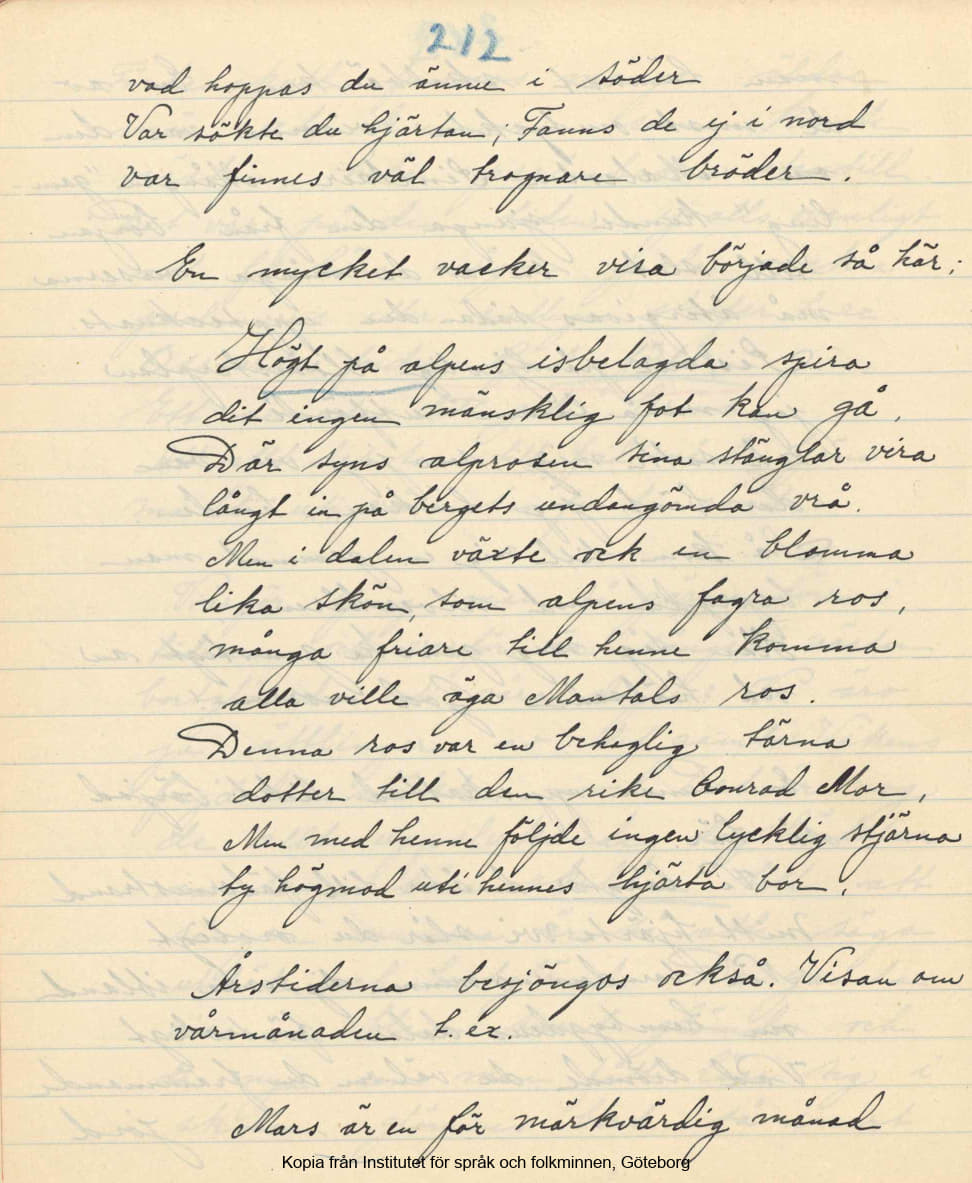 212
vad hoppas du ännu i söder
Var sökte du hjärtan, Fanns de ej i nord
var finnes väl trognare bröder.
En mycket vacker vira började så här;
Högt på alpens isbelagda spira
dit ingen mänsklig fot kan gå.
Där syns alprosen sina stänglar vira
långt in på bergets undangömda vrå.
Men i dalen växte ock en blomma
lika skön, som alpens fagra ros,
många friare till henne komma
alla ville äga Mantals ros.
Denna ros var en behaglig tärna
dotter till den rike Conrad Mor,
Men med henne följde ingen lycklig stjärna
ty högmod uti hennes hjärta bor.
Årstiderna besjöngos också. Visan om
vårmånaden t. ex.
Mars är en för märkvärdig månad
Kopia från Institutet för språk och folkminnen, Göteborg